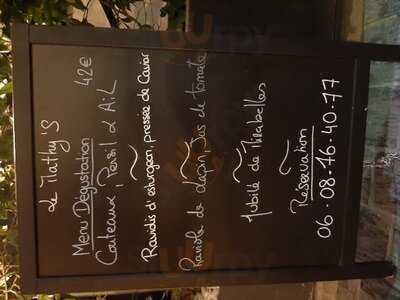 Le Mathy'S
Menu Dégustation 42€
Couteaux, Persil & AiL
Raviolis d'esturgeon, pressée de Caviar
Raviole de Lapin, Jus de tomate
Jubilé de Mirabelles
Réservation
06.08.76.40.77